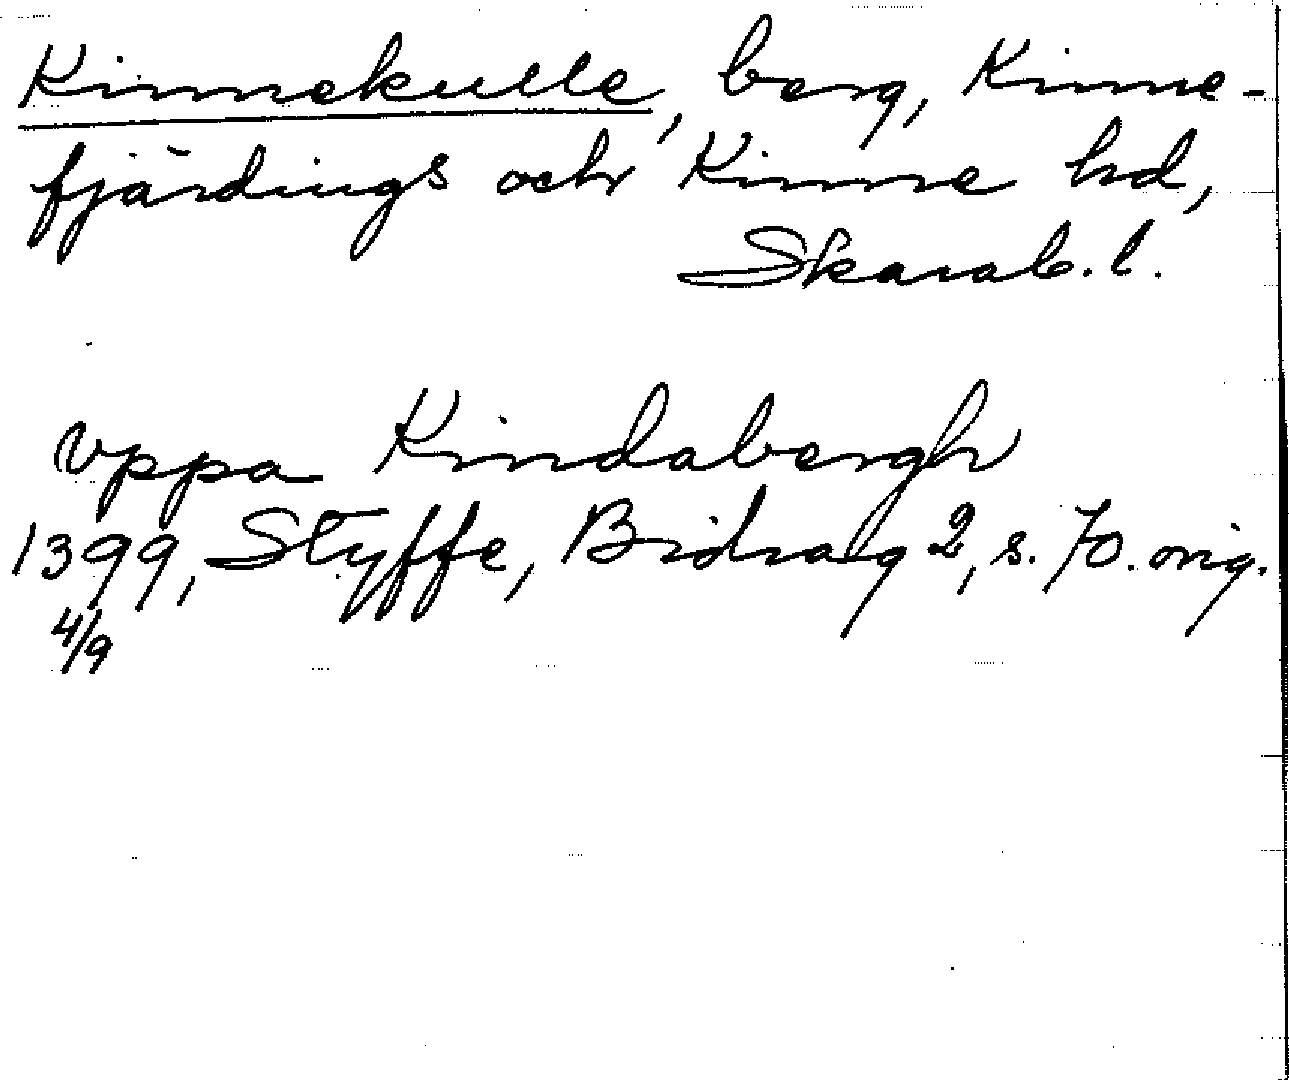 Kinnekulle, berg, Kinne-
fjärdings och Kinne hd,
Skarab. l.
vppa Kindabergh
1399, Styffe, Bidrag 2, s. 70. orig.
4/9